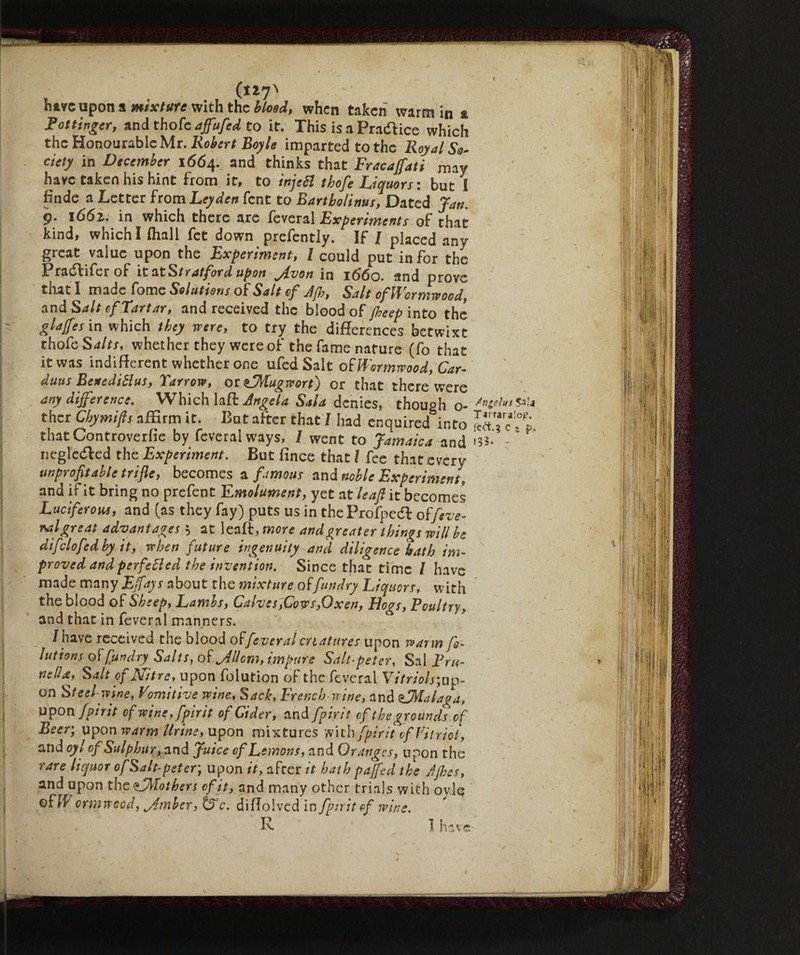 (127)
have upon a mixture with the blood, when taken warm in a
Pottinger, and thoſe affuſed to it. This is a Practice which
the Honourable Mr. Robert Boyle imparted to the Royal So-
ciety in December 1664. and thinks that Fracaſſati may
have taken his hint from it, to inject thoſe Liquors: but I
finde a Letter from Leyden ſent to Bartholinus, Dated Jan.
9. 1662. in which there are ſeveral Experiments of that
kind, which I ſhall ſet down preſently. If I placed any
great value upon the Experiment, I could put in for the
Practiſer of it at Stratford upon Avon in 1660. and prove
that I made ſome Solutions of Salt of Aſh, Salt of Wormwood,
and Salt of Tartar, and received the blood of ſheep into the
glaſſes in which they were, to try the differences betwixt
thoſe Salts, whether they were of the ſame nature (ſo that
it was indifferent whether one uſed Salt of Wormwood, Car-
duus Benedictus, Yarrow, or Mugwort) or that there were
any difference. Which laſt Angela Sala denies, though o-
ther Chymiſts affirm it. But after that I had enquired into
that Controverſie by ſeveral ways, I went to Jamaica and
neglected the Experiment. But ſince that I ſee that every
unprofitable trifle, becomes a famous and noble Experiment,
and if it bring no preſent Emolument, yet at leaſt it becomes
Luciferous, and (as they ſay) puts us in the Proſpect of ſeve-
ral great advantages; at leaſt, more and greater things will be
diſcloſed by it, when future ingenuity and diligence hath im-
proved and perfected the invention. Since that time I have
made many Eſſays about the mixture of ſundry Liquors, with
the blood of Sheep, Lambs, Calves, Cows, Oxen, Hogs, Poultry,
and that in ſeveral manners.
I have received the blood of ſeveral creatures upon warm ſo-
lutions of ſundry Salts, of Allom, impure Salt-peter, Sal Pru-
nellæ, Salt of Nitre, upon ſolution of the ſeveral Vitriols; up-
on Steel-wine, Vomitive wine, Sack, French-wine, and Malaga,
upon ſpirit of wine, ſpirit of Cider, and ſpirit of the grounds of
Beer; upon warm Urine, upon mixtures with ſpirit of Vitriol,
and oyl of Sulphur, and Juice of Lemons, and Oranges, upon the
rare liquor of Salt-peter; upon it, after it hath paſſed the Aſhes,
and upon the Mothers of it, and many other trials with oyle
of Wormwood, Amber, &c. diſſolved in ſpirit of wine.
R I have
Angelus Sala
Tartaralop.
ſect. 3 c 2 p.
133.